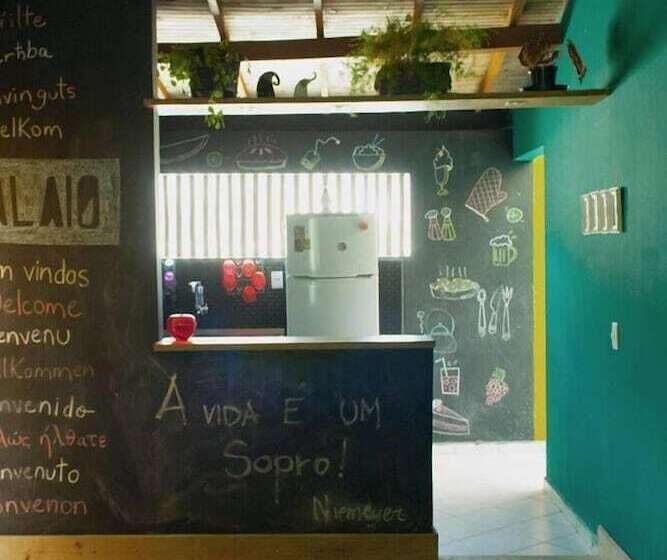 vinguts
elkom
ALAIO
m vindos
elcome
envenu
elkommen
envenido
λώς ήλθατε
envenuto
onvenon
A VIDA É UM
Sopro!
Niemeyer